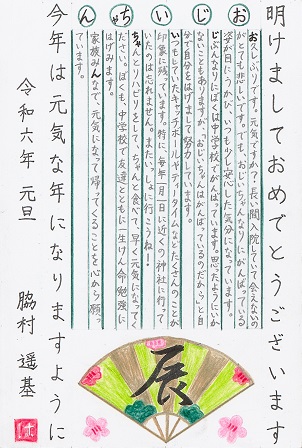 明けましておめでとうございます
おじいちゃん
お久しぶりです。元気ですか？長い間入院していて会えないの
がとても悲しいです。でも、おじいちゃんなりにがんばっている
姿が目にうかび、いつも少し安心した気分になっています。
じぶんなりにぼくは中学校でがんばっています。思ったようにいか
ないこともありますが、「おじいちゃんはがんばっているのだから」と自
分で自分をはげまして努力しています。
いつもしていたキャッチボールやティータイムなどたくさんのことが
印象に残っています。特に、毎年一月一日に近くの神社に行って
いたのは忘れません。またいっしょに行こうね！
ちゃんとリハビリをして、ちゃんと食べて、早く元気になってく
ださい。ぼくも、中学校で友達とともに一生けん命勉強に
はげみます。
家族みんなで、元気になって帰ってくることを心から願っ
ています。
今年は元気な年になりますように
令和六年 元旦
脇村 遥基
辰